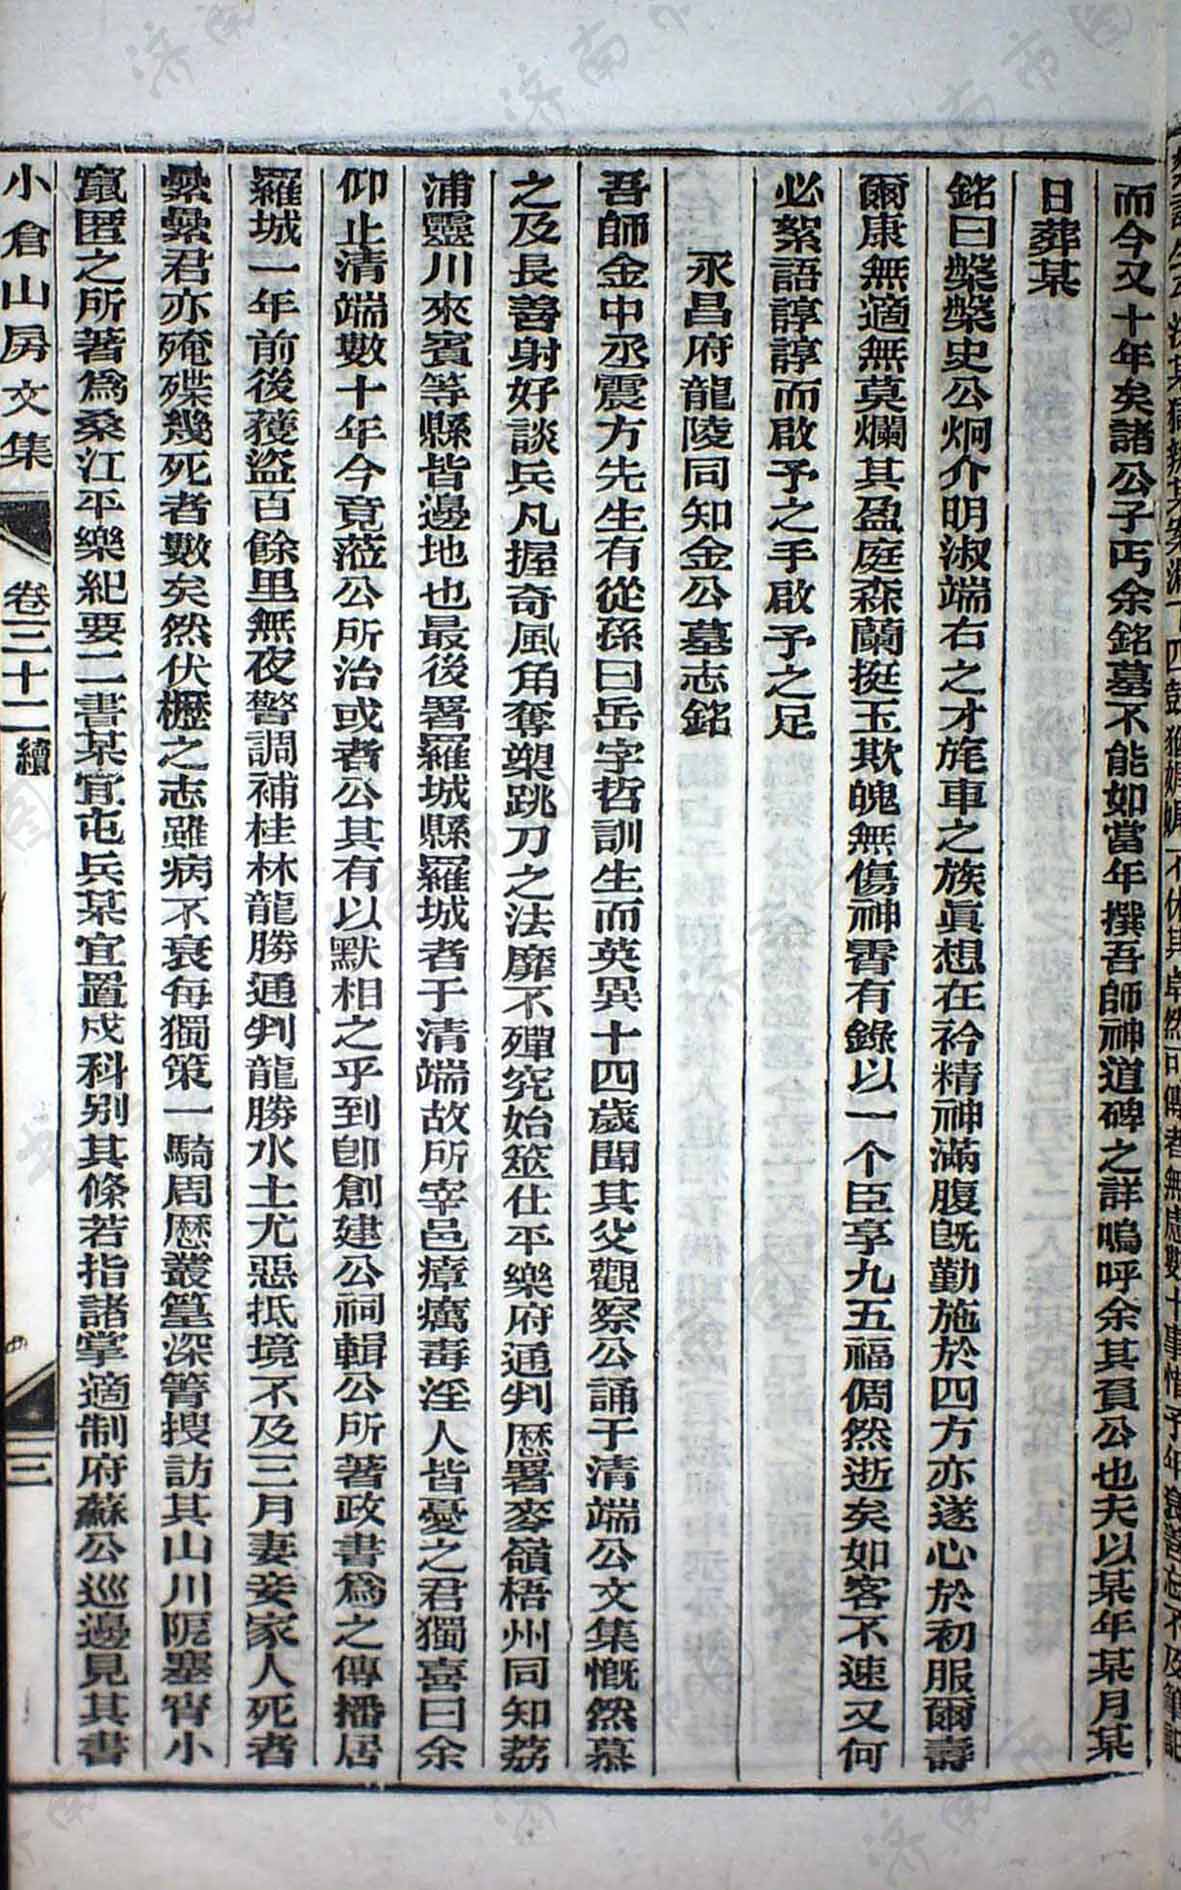 而今又十年矣諸公子丐余銘墓不能如當年撰吾師神道碑之詳嗚呼余其負公也夫以某年某月某
日葬某
銘曰槃槃史公炯介明淑端右之才旄車之族眞想在衿精神滿腹旣勤施於四方亦遂心於初服爾壽
爾康無適無莫爛其盈庭森蘭挺玉欺魄無傷神霄有錄以一个臣享九五福倜然逝矣如客不速又何
必絮語諄諄而啟予之手啟予之足
永昌府龍陵同知金公墓志銘
吾師金中丞震方先生有從孫曰岳字哲訓生而英異十四歲聞其父觀察公誦于清端公文集慨然慕
之及長善射好談兵凡握奇風角奪槊跳刀之法靡不殫究始筮仕平樂府通判歷署麥嶺梧州同知荔
浦靈川來賓等縣皆邊地也最後署羅城縣羅城者于清端故所宰邑瘴癘毒淫人皆憂之君獨喜曰余
仰止清端數十年今竟蒞公所治或者公其有以默相之乎到卽創建公祠輯公所著政書爲之傳播居
羅城一年前後獲盜百餘里無夜警調補桂林龍勝通判龍勝水土尤惡抵境不及三月妻妾家人死者
纍纍君亦殗殜幾死者數矣然伏櫪之志雖病不衰每獨策一騎周歷叢篁深箐搜訪其山川阨塞宵小
竄匿之所著爲桑江平樂紀要二書某宜屯兵某宜置戍科別其條若指諸掌適制府蘇公巡邊見其書
小倉山房文集
卷三十二續
三